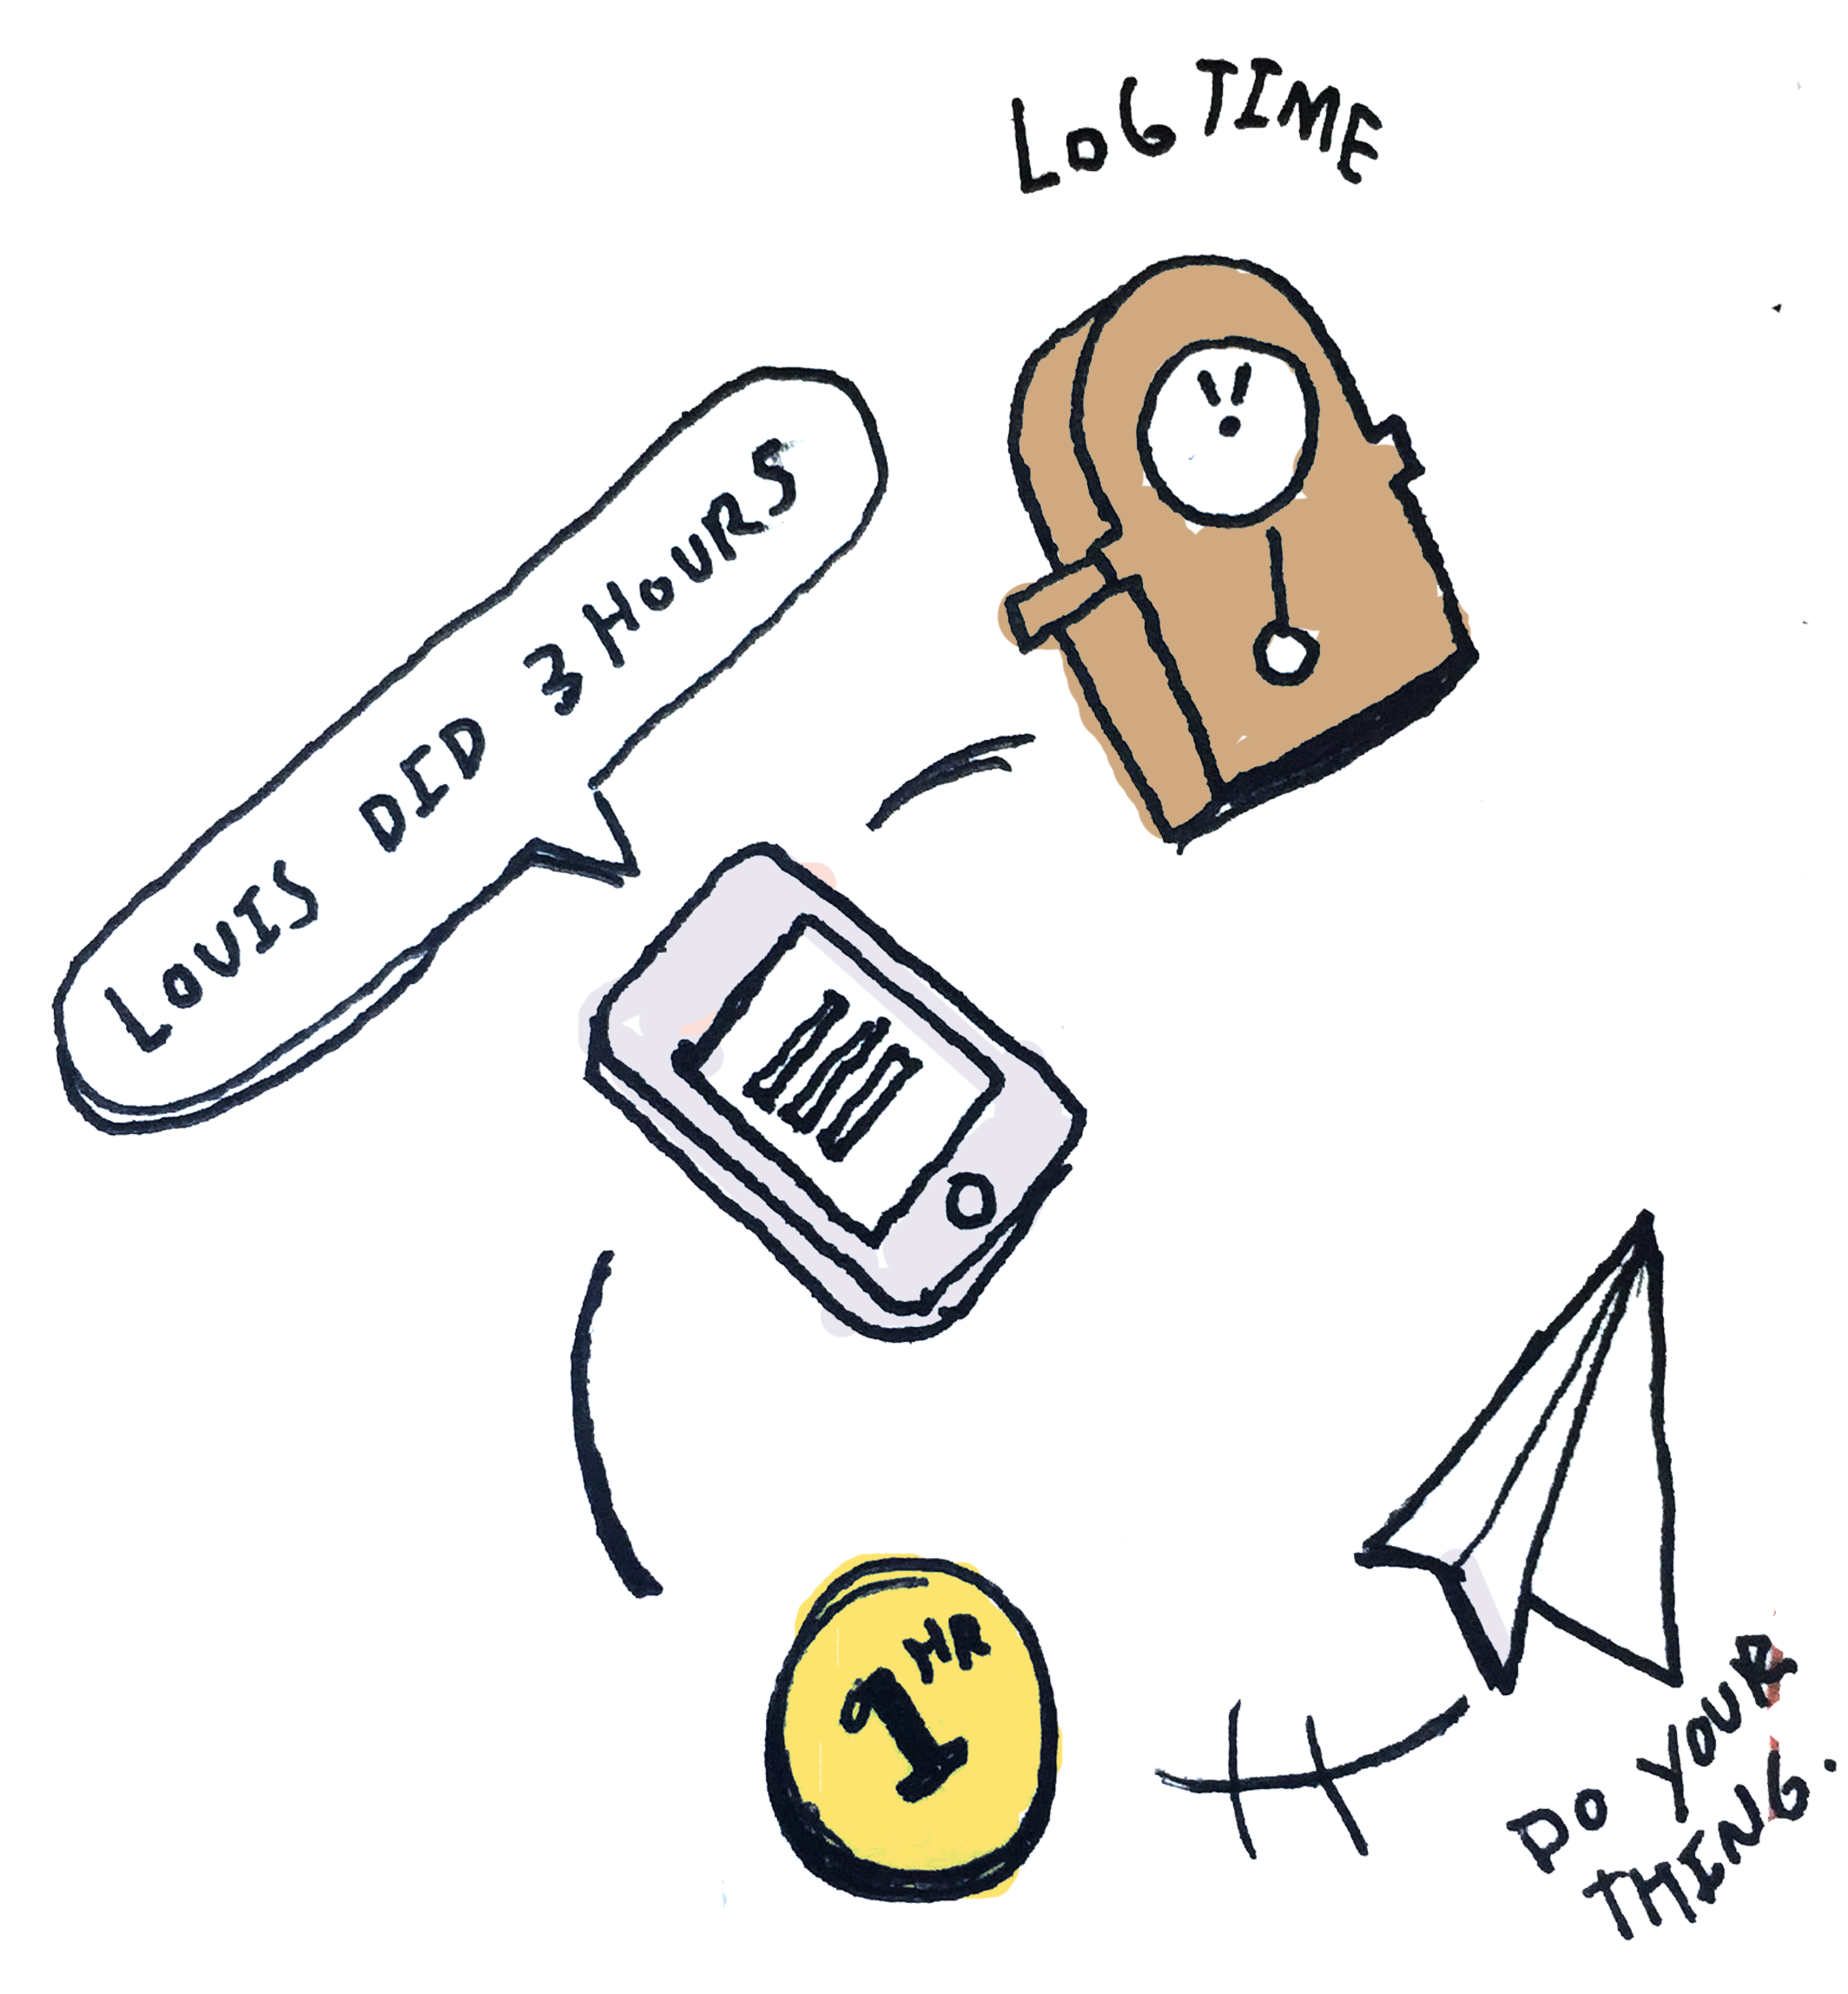 LOG TIME
LOUIS DID 3 HOURS
1 HR
DO YOUR
THING.